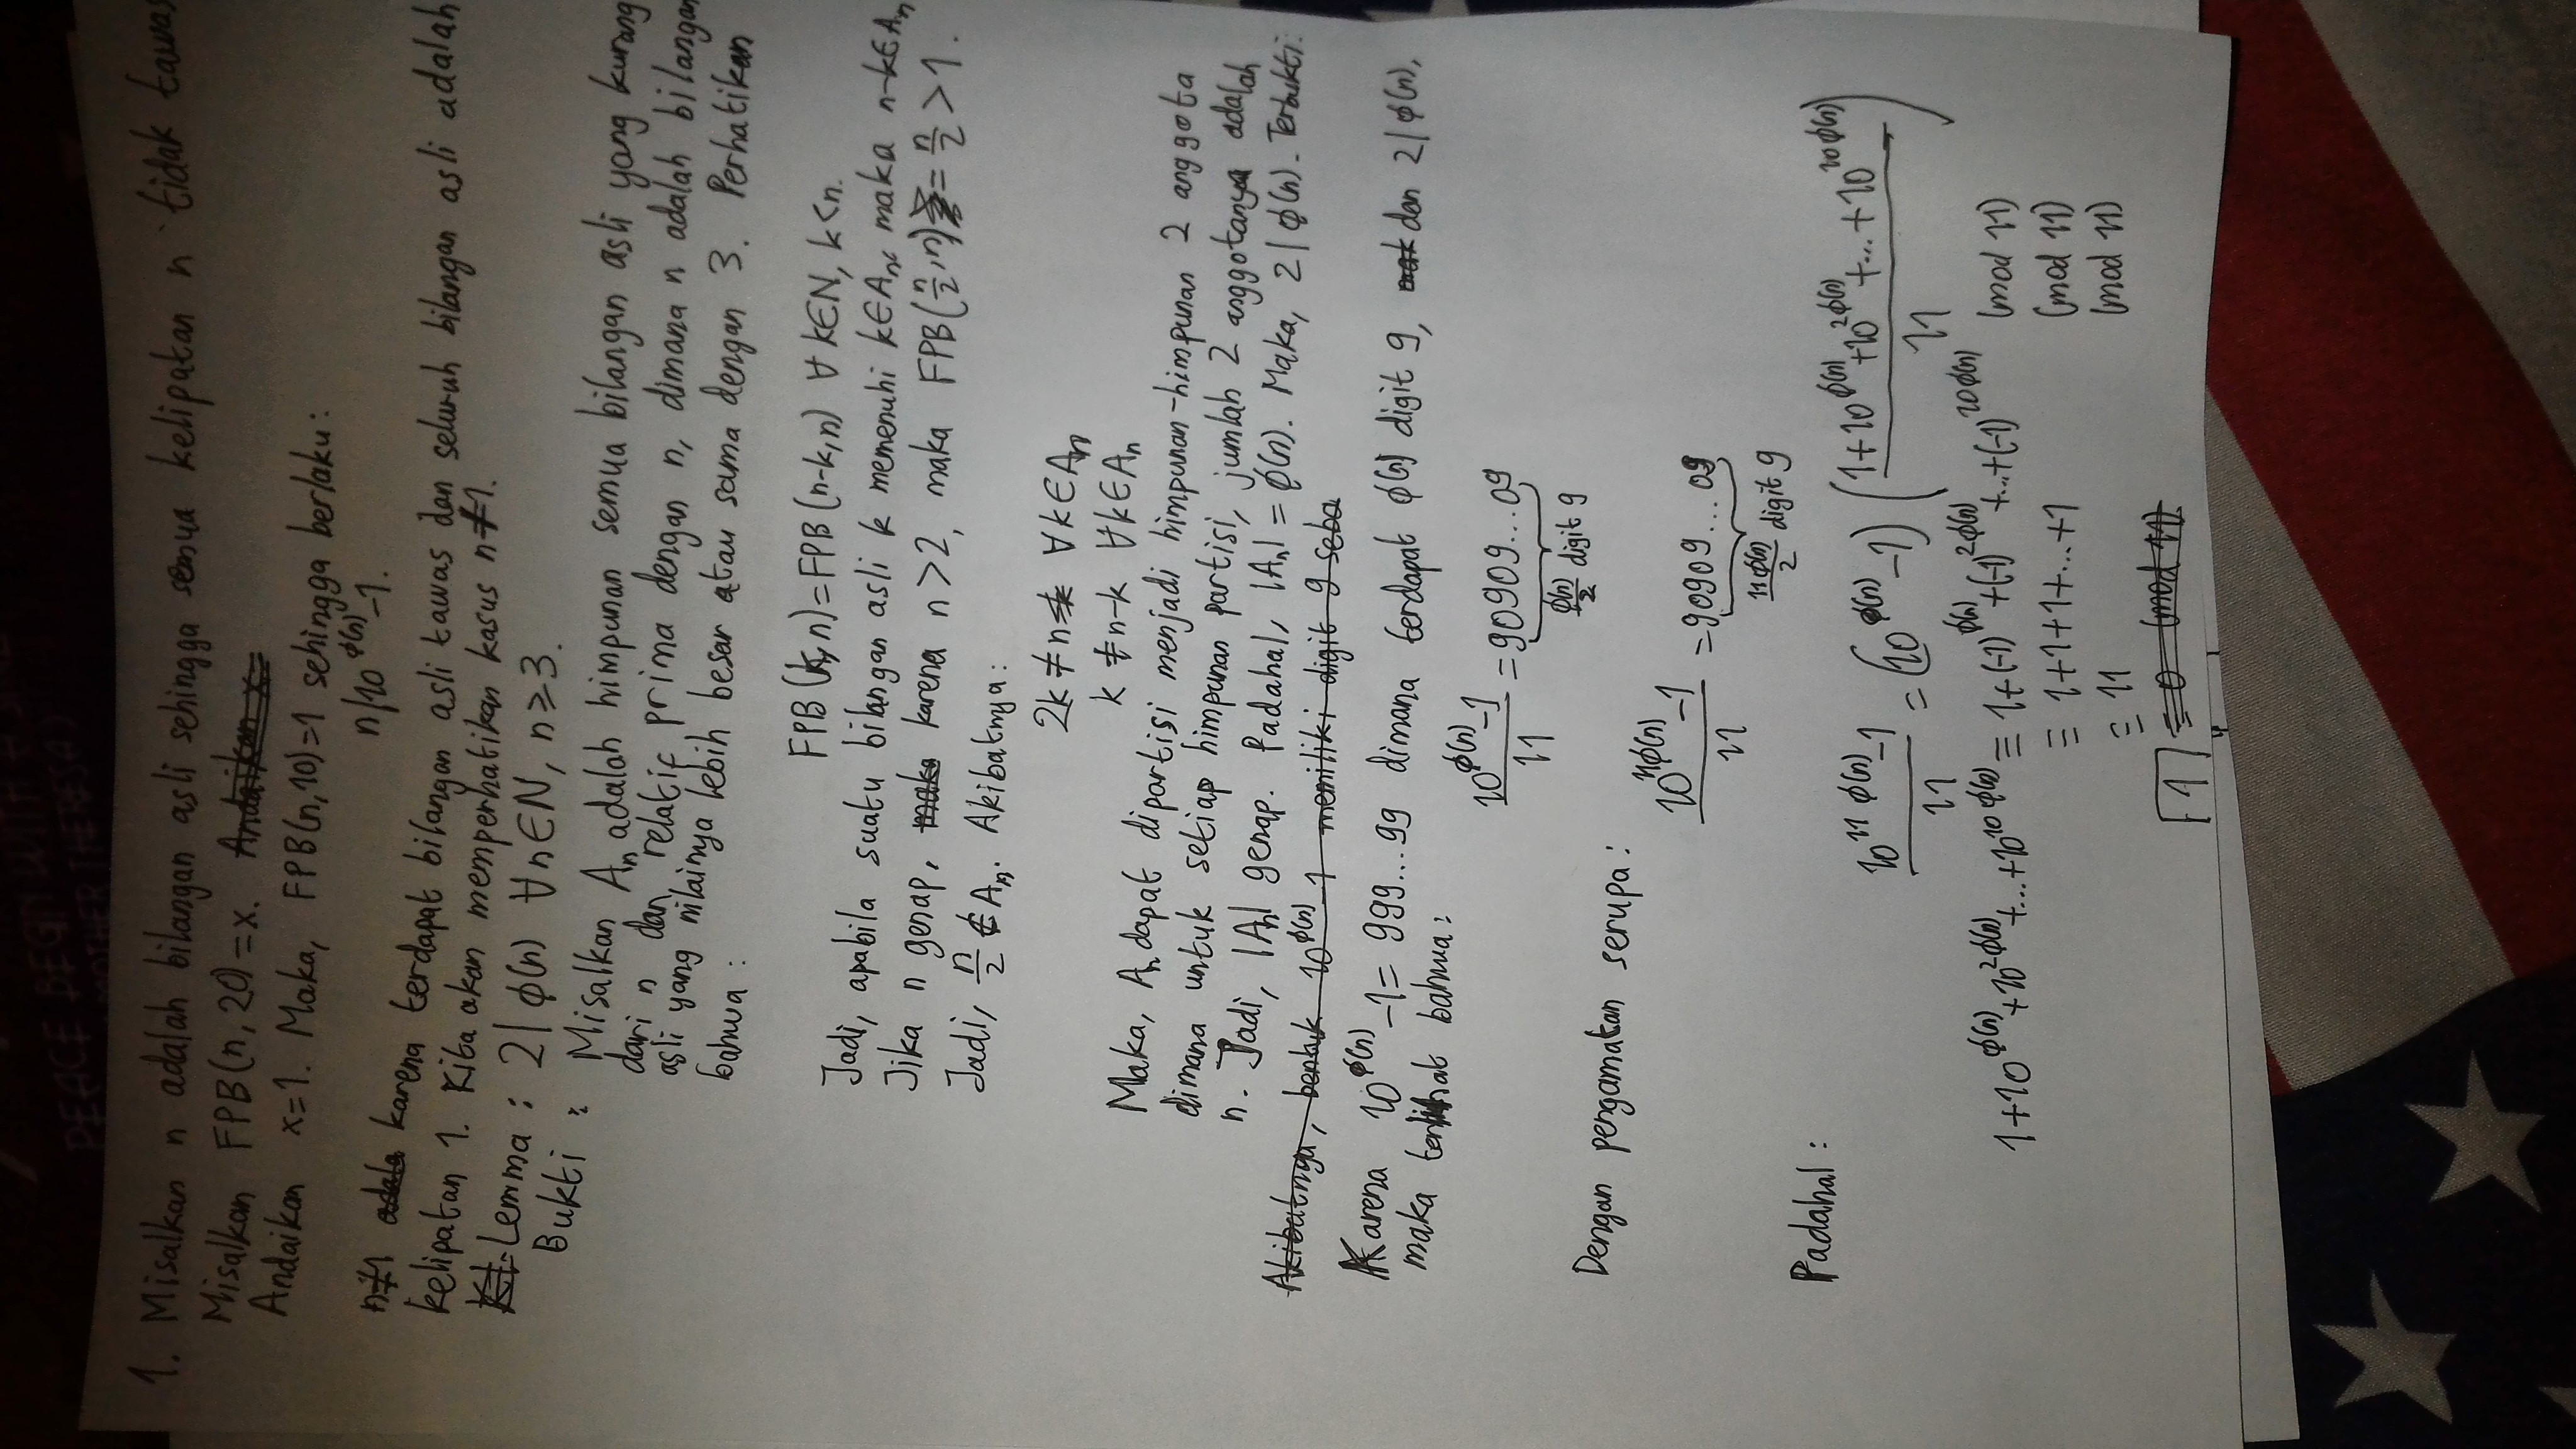 PEACE BEGIN WITH A
MOTHER THERESA)
1. Misalkan n adalah bilangan asli sehingga semua kelipatan n tidak tawas
Misalkan FPB(n, 20) = x. Andaikan x=
Andaikan x=1. Maka, FPB(n,10)=1 sehingga berlaku:
n|10^φ(n) -1.
n≠1 adala karena terdapat bilangan asli tawas dan seluruh bilangan asli adalah
kelipatan 1. Kita akan memperhatikan kasus n≠1.
Lemma : 2| φ(n) ∀n∈N, n≥3.
Bukti : Misalkan Aₙ adalah himpunan semua bilangan asli yang kurang
dari n dan relatif prima dengan n, dimana n adalah bilangan
asli yang nilainya lebih besar atau sama dengan 3. Perhatikan
bahwa :
FPB (k, n) = FPB (n-k, n) ∀ k∈N, k<n.
Jadi, apabila suatu bilangan asli k memenuhi k∈Aₙ, maka n-k∈Aₙ
Jika n genap, maka karena n>2, maka FPB(n/2, n) = n/2 > 1.
Jadi, n/2 ∉ Aₙ. Akibatnya:
2k ≠ n ∀k∈Aₙ
k ≠ n-k ∀k∈Aₙ
Maka, Aₙ dapat dipartisi menjadi himpunan-himpunan 2 anggota
dimana untuk setiap himpunan partisi, jumlah 2 anggotanya adalah
n. Jadi, |Aₙ| genap. Padahal, |Aₙ| = φ(n). Maka, 2| φ(n). Terbukti.
Akibatnya, bentuk 10^φ(n) -1 memiliki digit 9 seba
Karena 10^φ(n) -1 = 999...99 dimana terdapat φ(n) digit 9, mak dan 2|φ(n),
maka terlihat bahwa:
(10^φ(n) -1)/11 = 90909...09
φ(n)/2 digit 9
Dengan pengamatan serupa:
(10^11φ(n) -1)/11 = 90909...09
11φ(n)/2 digit 9
Padahal :
(10^11φ(n) -1)/11 = (10^φ(n) -1) ((1+10^φ(n)+10^2φ(n)+...+10^10φ(n))/11)
1+10^φ(n)+10^2φ(n)+...+10^10φ(n) ≡ 1+(-1)^φ(n)+(-1)^2φ(n)+...+(-1)^10φ(n) (mod 11)
≡ 1+1+1+...+1 (mod 11)
≡ 11 (mod 11)
1 ≡ 0 (mod 11)